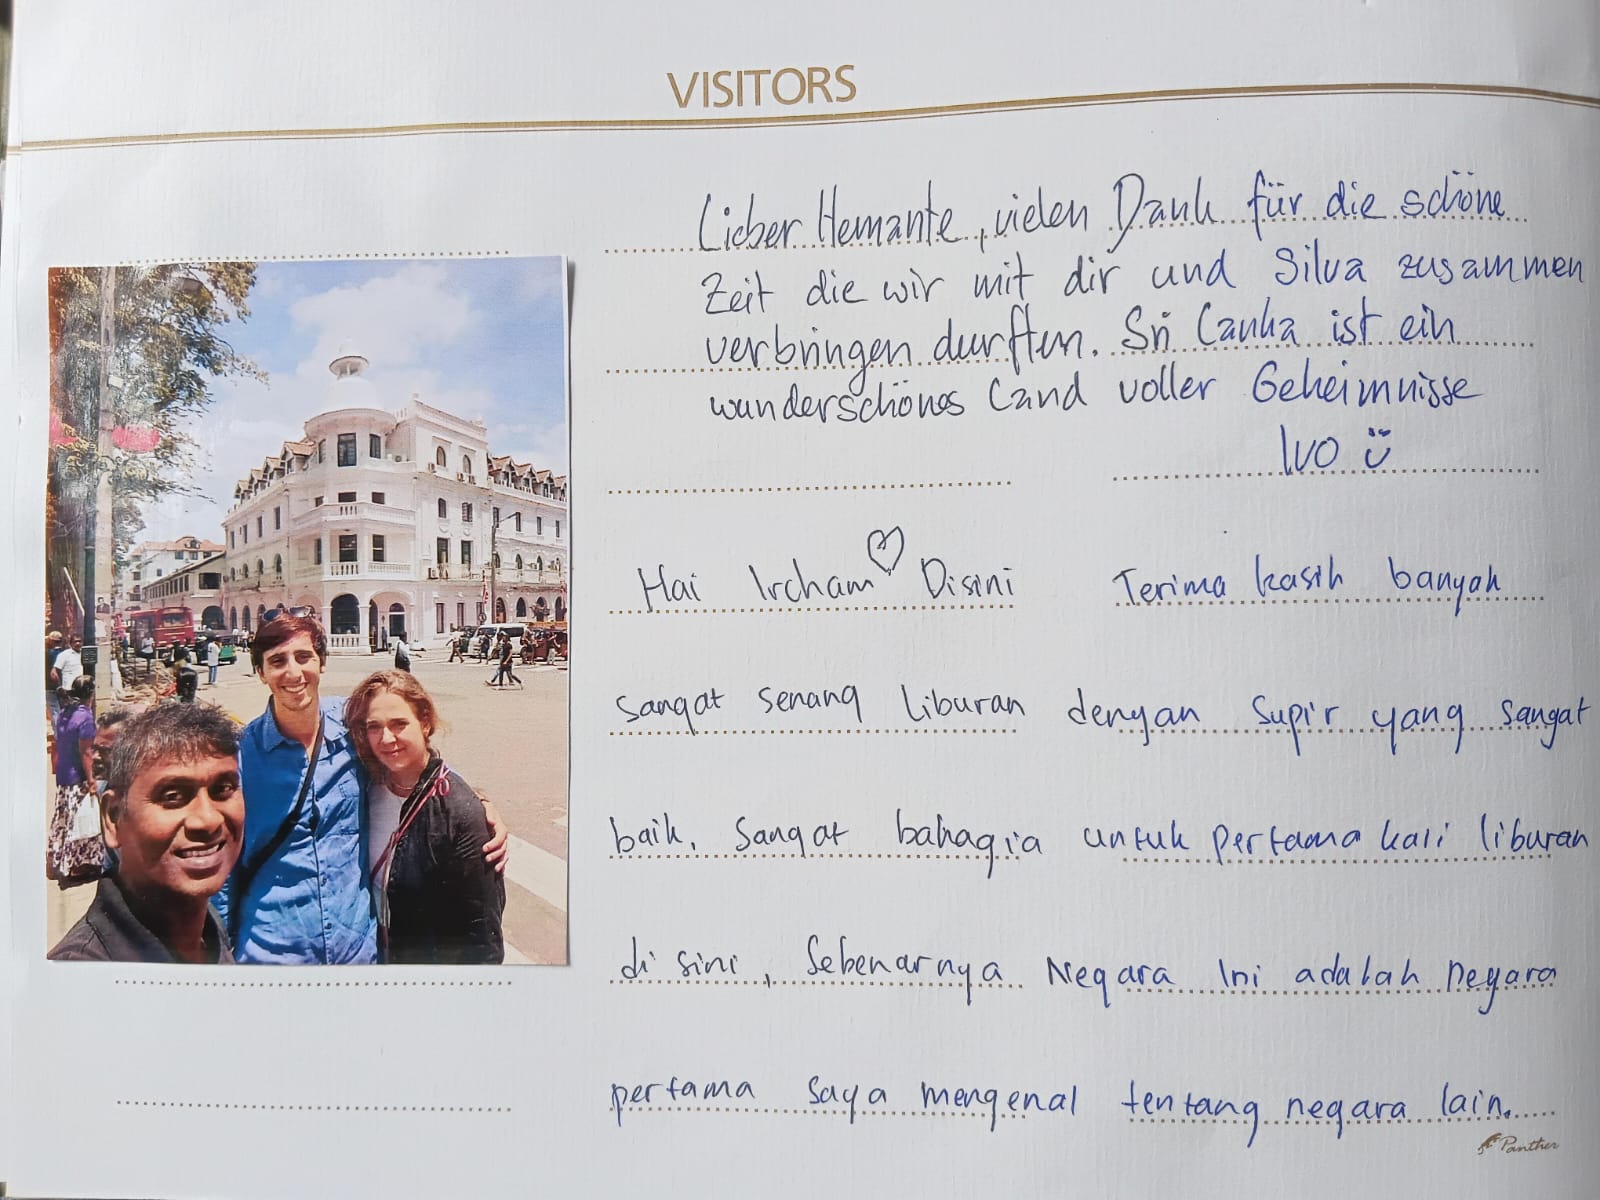 VISITORS
Lieber Hemante, vielen Dank für die schöne
Zeit die wir mit dir und Silva zusammen
verbringen durften. Sri Lanka ist ein
wunderschönes Land voller Geheimnisse
IVO
Hai Ircham Disini Terima kasih banyak
sangat senang liburan dengan supir yang sangat
baik. Sangat bahagia untuk pertama kali liburan
di sini, Sebenarnya Negara Ini adalah negara
pertama saya mengenal tentang negara lain.
Panther